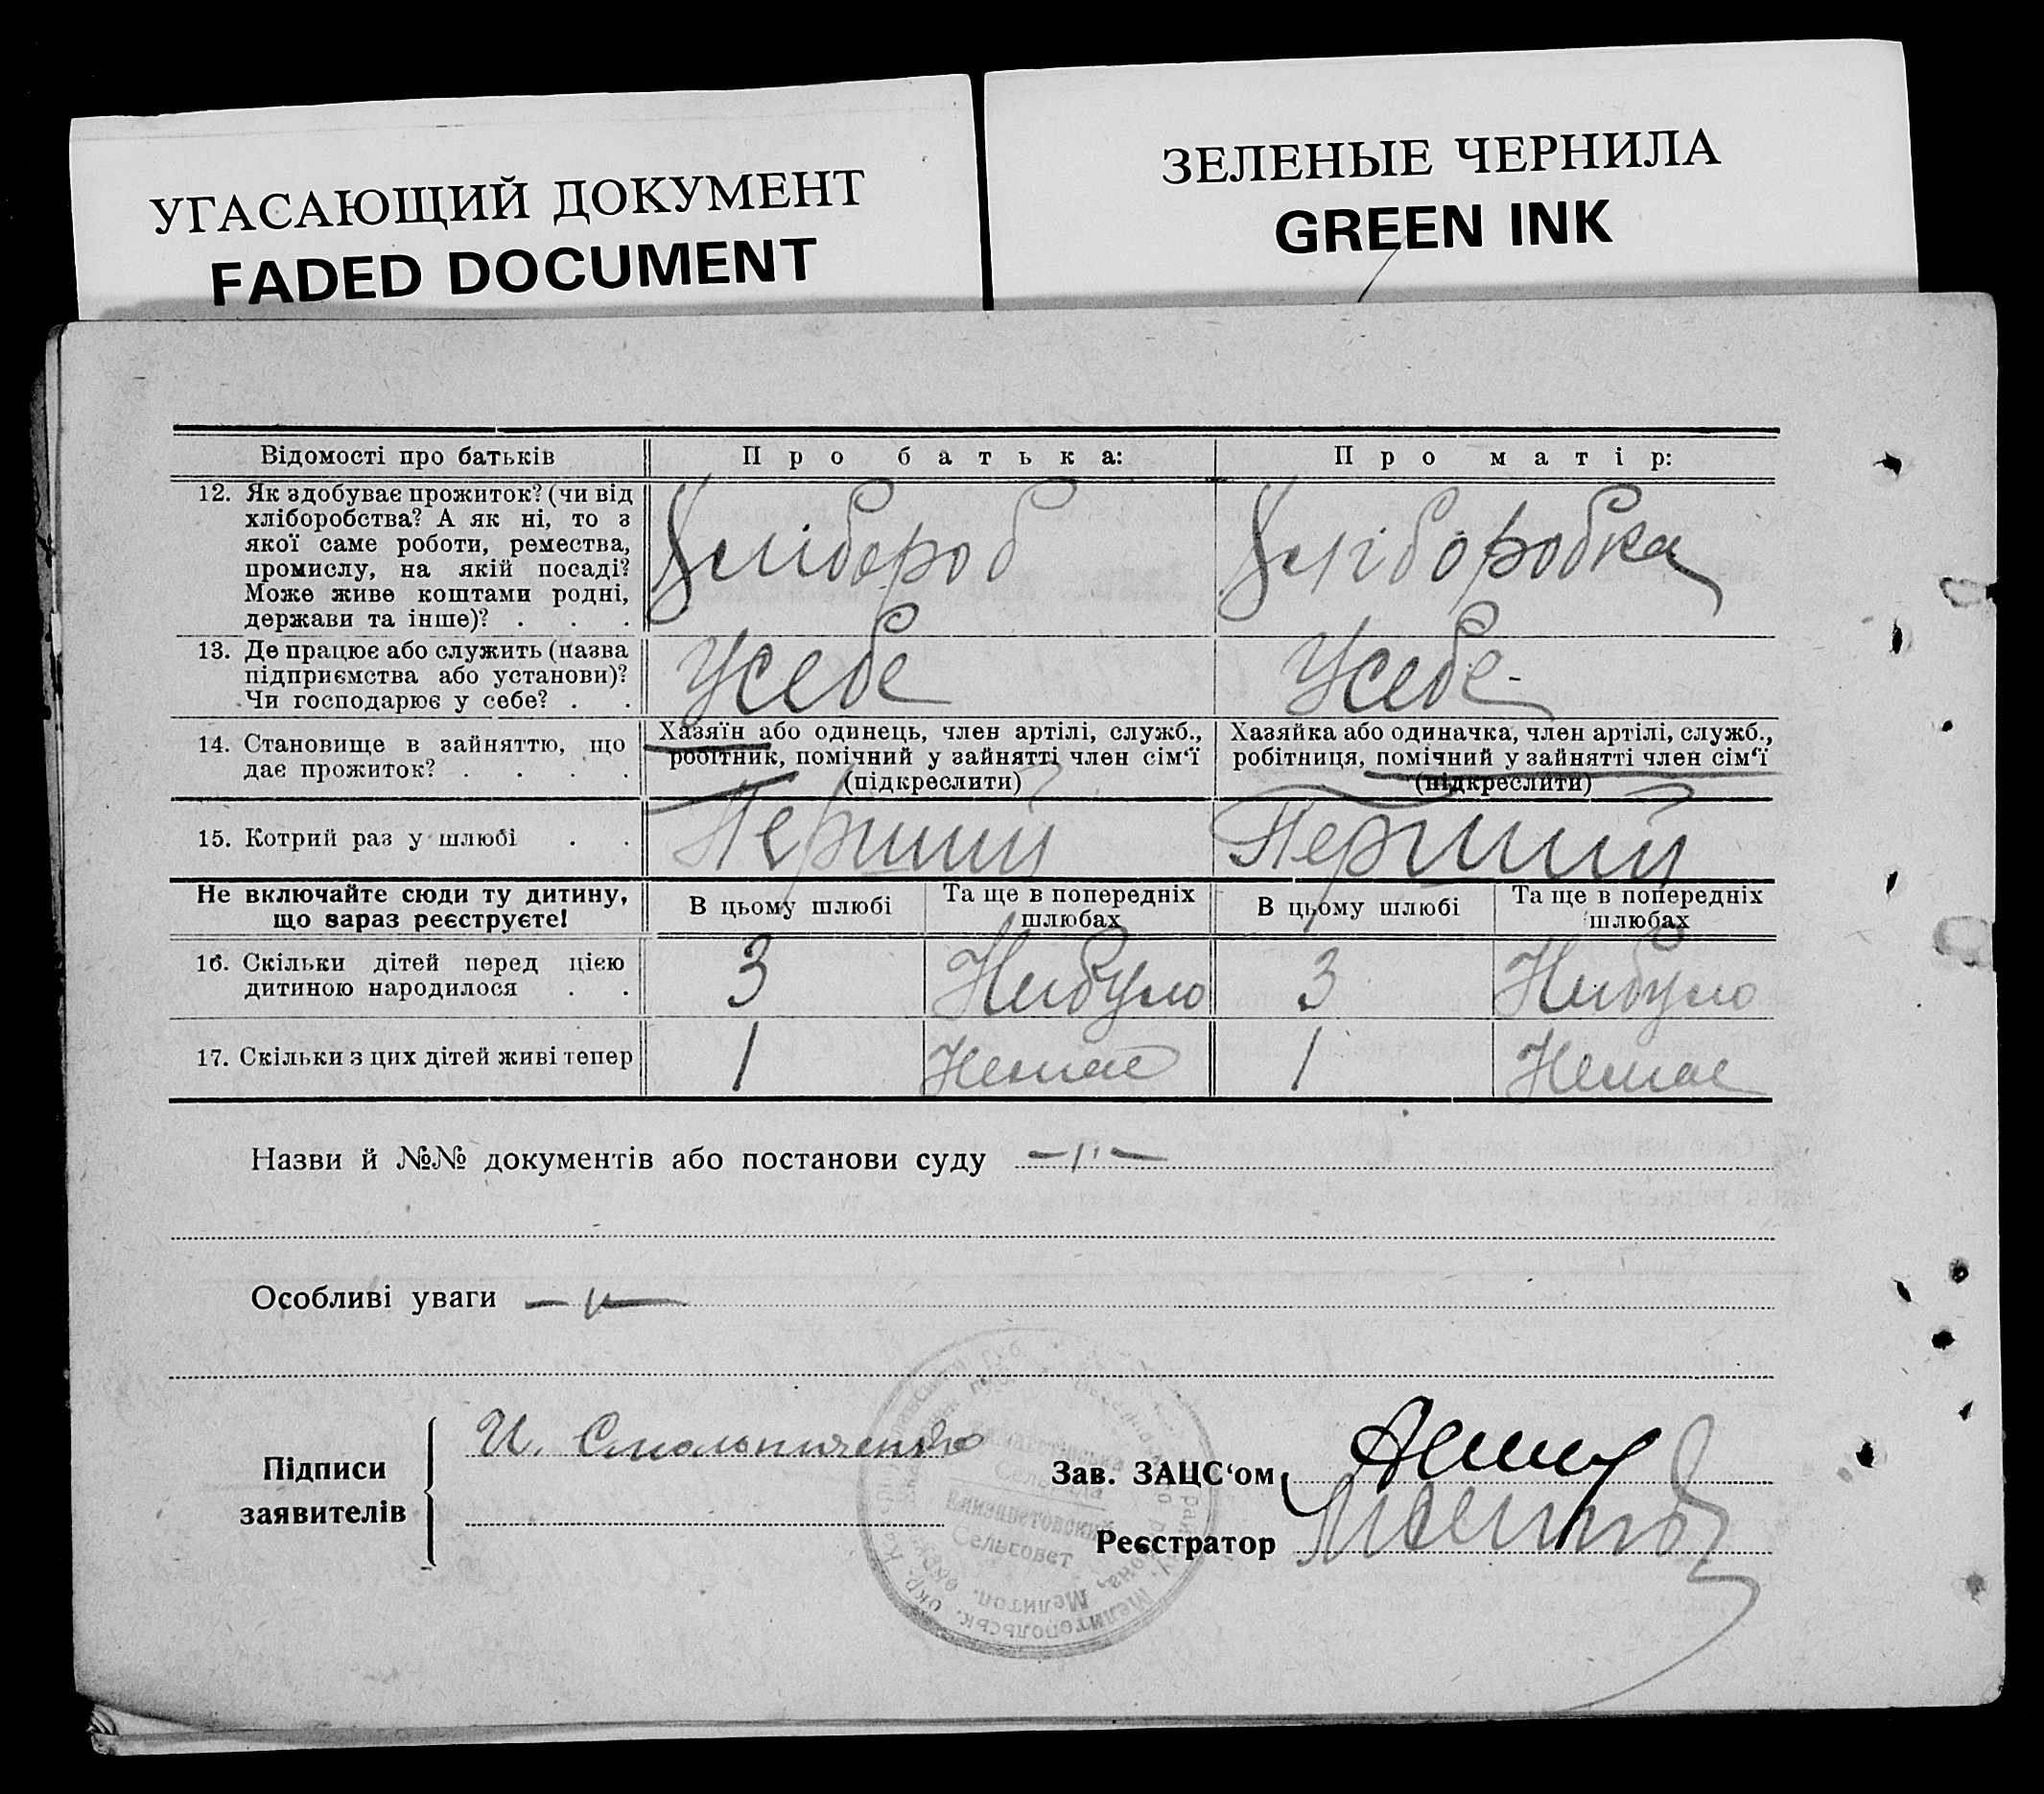 УГАСАЮЩИЙ ДОКУМЕНТ
FADED DOCUMENT
ЗЕЛЕНЫЕ ЧЕРНИЛА
GREEN INK
Відомості про батьків
Про батька:
Про матір:
12. Як здобуває прожиток? (чи від
хліборобства? А як ні, то з
якої саме роботи, ремества,
промислу, на якій посаді?
Може живе коштами родні,
держави та інше)? . . .
Хлібороб
Хліборобка
13. Де працює або служить (назва
підприємства або установи)?
Чи господарює у себе? . .
Усебе
Усебе
14. Становище в зайняттю, що
дає прожиток? . . . .
Хазяїн або одинець, член артілі, служб.,
робітник, помічний у зайнятті член сім'ї
(підкреслити)
Хазяйка або одиначка, член артілі, служб.,
робітниця, помічний у зайнятті член сім'ї
(підкреслити)
15. Котрий раз у шлюбі . .
Перший
Перший
Не включайте сюди ту дитину,
що зараз реєструєте!
В цьому шлюбі
Та ще в попередніх
шлюбах
В цьому шлюбі
Та ще в попередніх
шлюбах
16. Скільки дітей перед цією
дитиною народилося . .
3
Небуло
3
Небуло
17. Скільки з цих дітей живі тепер
1
Немає
1
Немає
Назви й №№ документів або постанови суду —"—
Особливі уваги —"—
Підписи
заявителів
И.
Зав. ЗАЦС'ом
Реєстратор
Сельрада
Елизаветовский
Сельсовет
Мелитопольськ. окр.